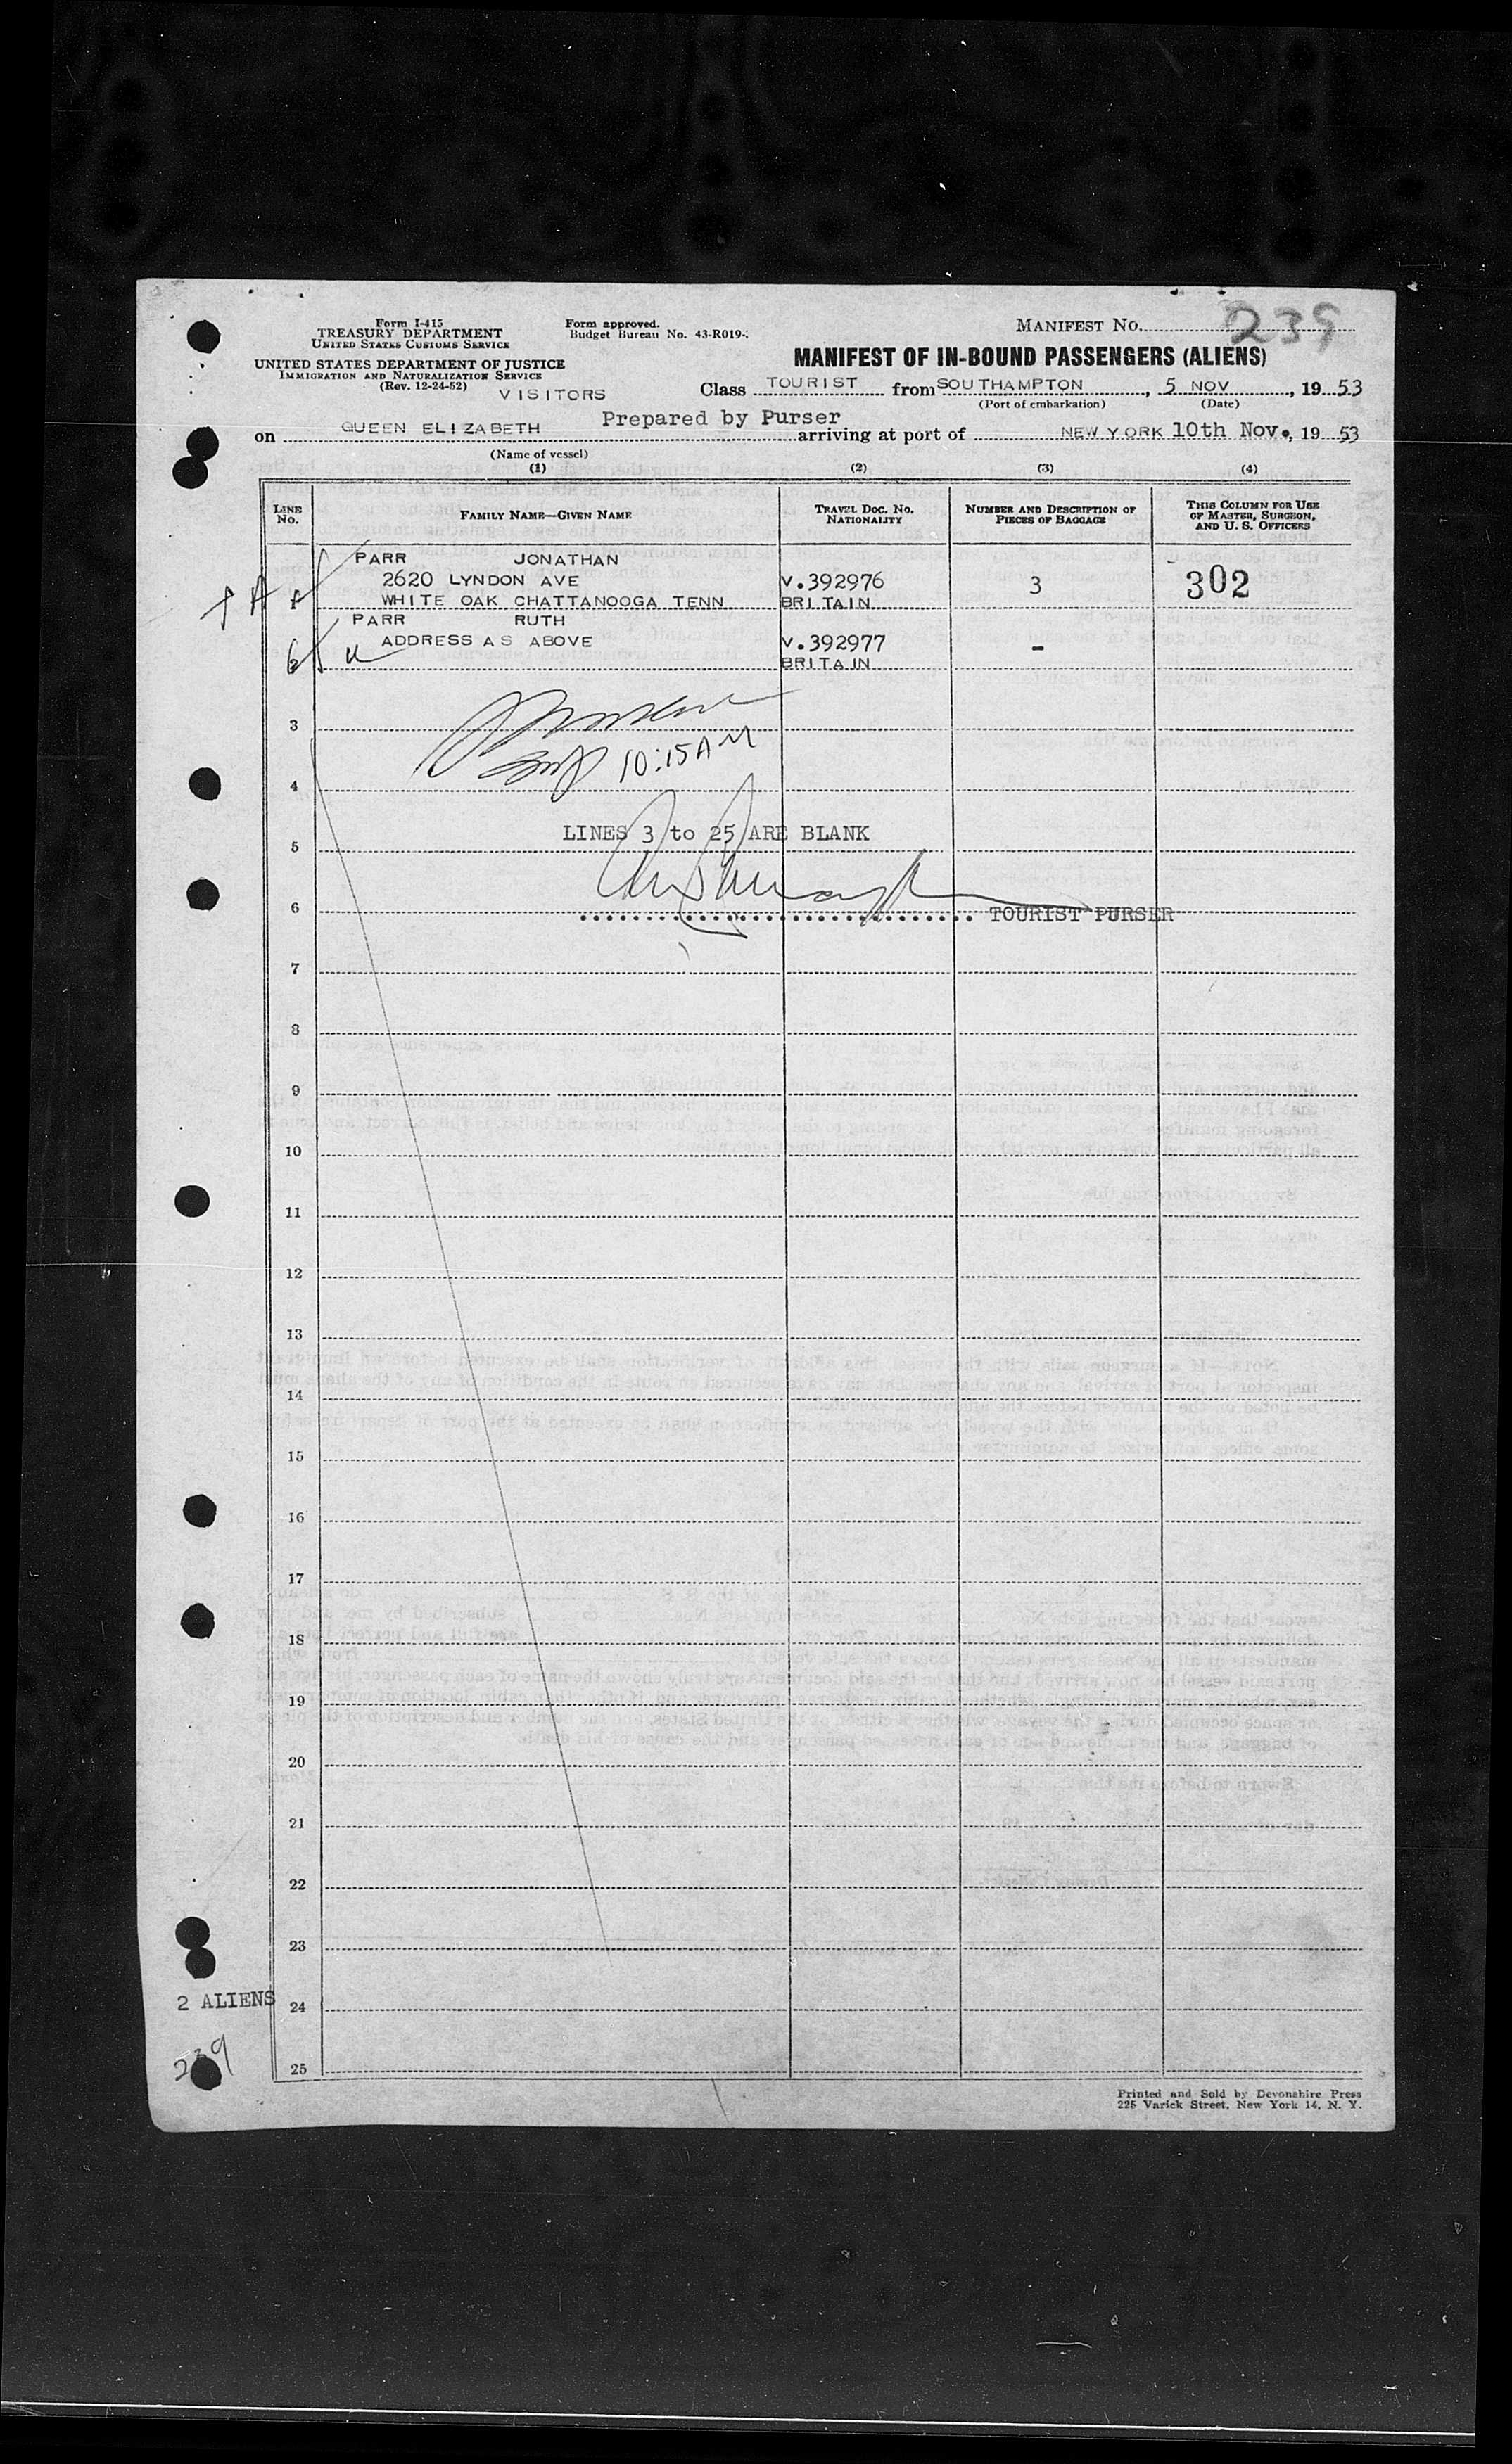 Form I-415
TREASURY DEPARTMENT
UNITED STATES CUSTOMS SERVICE
UNITED STATES DEPARTMENT OF JUSTICE
IMMIGRATION AND NATURALIZATION SERVICE
(Rev. 12-24-52)
VISITORS
Form approved.
Budget Bureau No. 43-R019-
MANIFEST NO. 239
MANIFEST OF IN-BOUND PASSENGERS (ALIENS)
Class TOURIST from SOUTHAMPTON, 5 NOV, 1953
(Port of embarkation) (Date)
Prepared by Purser
on QUEEN ELIZABETH arriving at port of NEW YORK 10th Nov., 19 53
(Name of vessel)
(1) (2) (3) (4)
LINE NO. FAMILY NAME—GIVEN NAME TRAVEL DOC. NO. NATIONALITY NUMBER AND DESCRIPTION OF PIECES OF BAGGAGE THIS COLUMN FOR USE OF MASTER, SURGEON, AND U. S. OFFICERS
PARR JONATHAN
2620 LYNDON AVE V.392976 3 302
1 WHITE OAK CHATTANOOGA TENN BRITAIN
PARR RUTH
ADDRESS AS ABOVE V.392977 -
2 BRITAIN
3
10:15 AM
4
LINES 3 to 25 ARE BLANK
5
6 TOURIST PURSER
7
8
9
10
11
12
13
14
15
16
17
18
19
20
21
22
23
2 ALIENS 24
239
25
Printed and Sold by Devonshire Press
225 Varick Street, New York 14, N. Y.